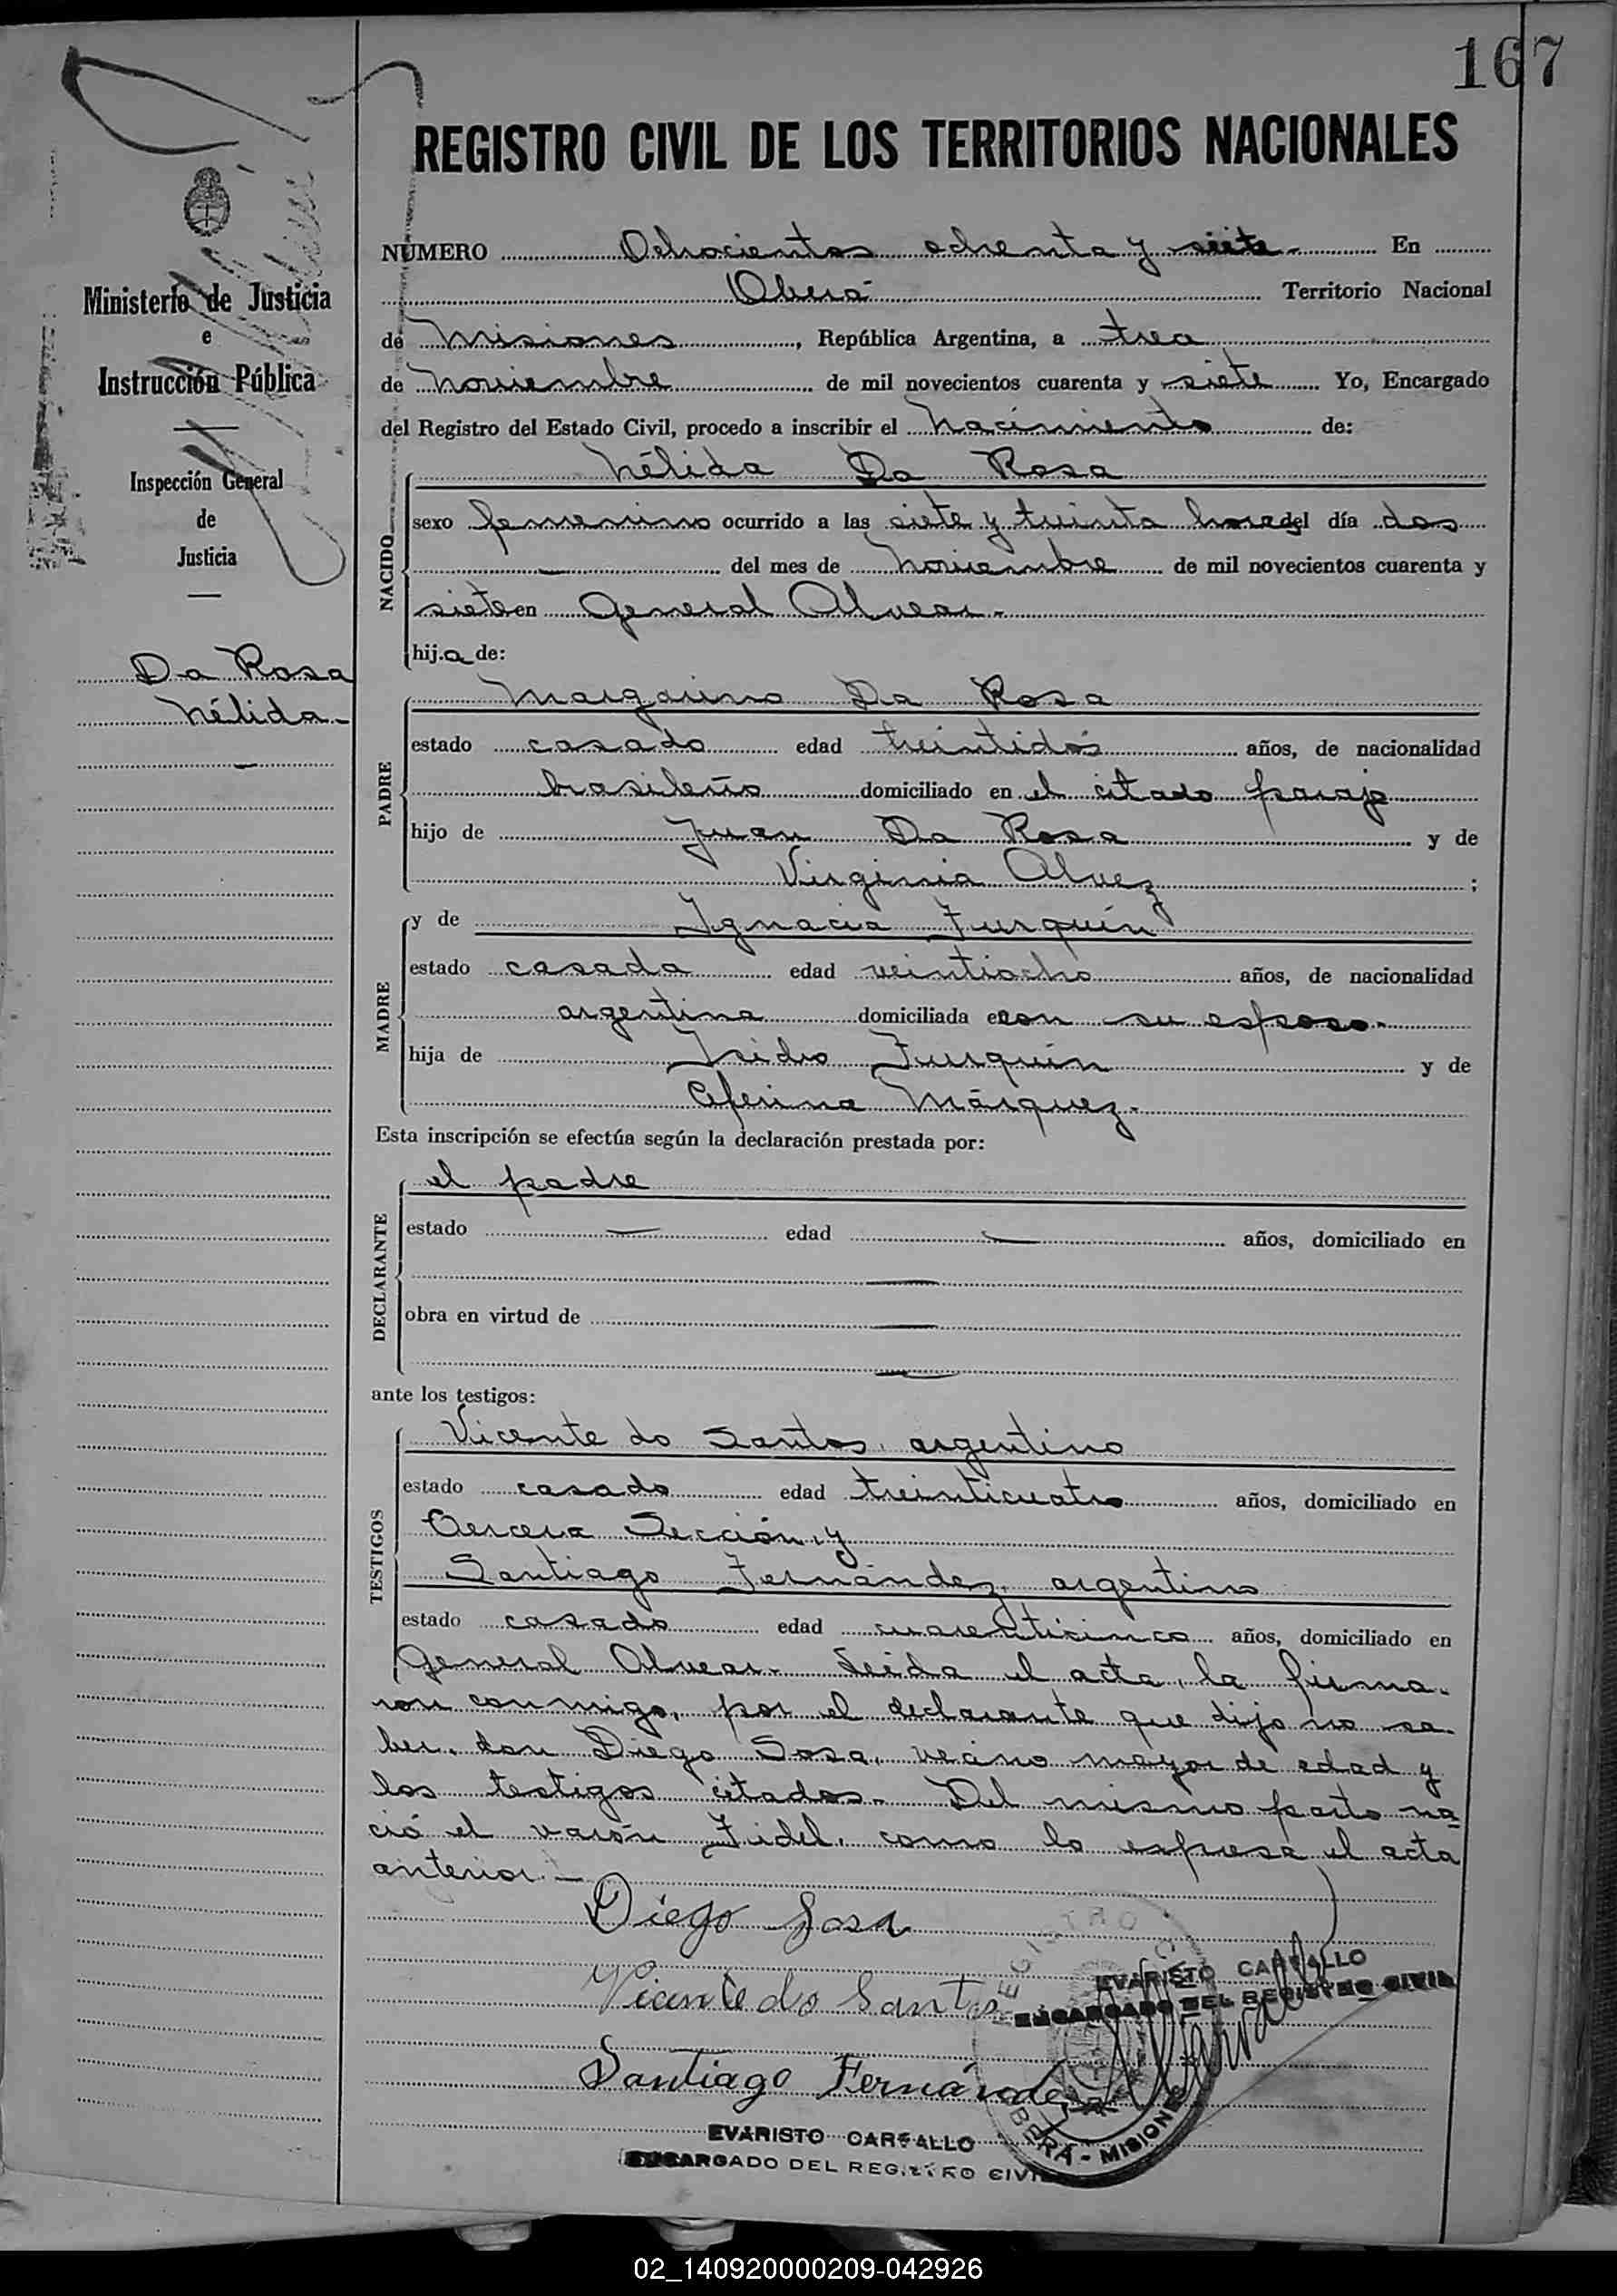 167
REGISTRO CIVIL DE LOS TERRITORIOS NACIONALES
Ministerio de Justicia
e
Instrucción Pública
Inspección General
de
Justicia
Da Rosa
Nélida
NÚMERO Ochocientos ochenta y siete En
Oberá Territorio Nacional
de Misiones, República Argentina, a tres
de Noviembre de mil novecientos cuarenta y siete Yo, Encargado
del Registro del Estado Civil, procedo a inscribir el Nacimiento de:
NACIDO
Nélida Da Rosa
sexo femenino ocurrido a las siete y treinta horas del día dos
del mes de Noviembre de mil novecientos cuarenta y
siete en General Alvear.
hija de:
PADRE
Margarino Da Rosa
estado casado edad treintidós años, de nacionalidad
brasileño domiciliado en el citado paraje
hijo de Juan Da Rosa y de
Virginia Alvez;
MADRE
y de Ignacia Furquín
estado casada edad veintiocho años, de nacionalidad
argentina domiciliada con su esposo.
hija de Isidro Furquín y de
Ceferina Márquez.
Esta inscripción se efectúa según la declaración prestada por:
DECLARANTE
el padre
estado — edad — años, domiciliado en
—
obra en virtud de —
—
ante los testigos:
TESTIGOS
Vicente do Santos, argentino
estado casado edad treinticuatro años, domiciliado en
Tercera Sección, y
Santiago Fernández, argentino
estado casado edad cuarenticinco años, domiciliado en
General Alvear. Leida el acta, la firma-
ron conmigo, por el declarante que dijo no sa-
ber, don Diego Sosa, vecino mayor de edad y
los testigos citados. Del mismo parto na
ció el varón Fidel, como lo expresa el acta
anterior.—
Diego Sosa
Vicente do Santos
EVARISTO CARVALLO
ENCARGADO DEL REGISTRO CIVIL
Santiago Fernández
REGISTRO CIVIL
OBERÁ - MISIONES
EVARISTO CARVALLO
ENCARGADO DEL REGISTRO CIVIL
02_140920000209-042926